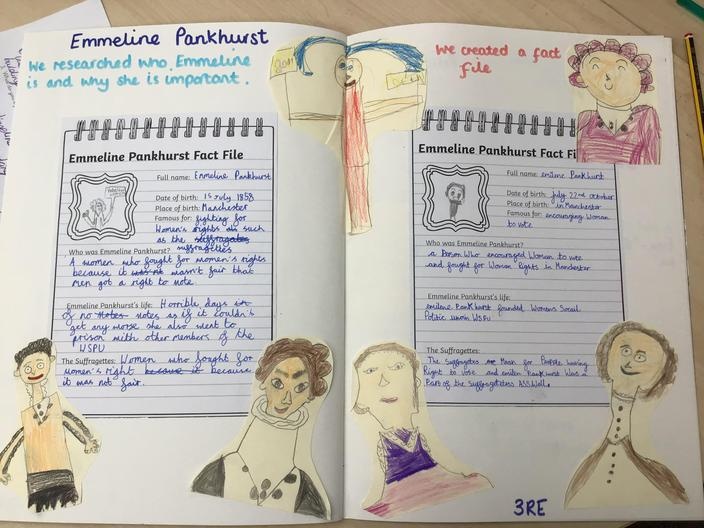 Emmeline Pankhurst
We researched who Emmeline
is and why she is important.
Emmeline Pankhurst Fact File
Full name: Emmeline Pankhurst
Date of birth: 15 July 1858
Place of birth: Manchester
Famous for: fighting for
Women's rights such
as the suffragates
suffragettes
Who was Emmeline Pankhurst?
A women who fought for women's rights
because it wasn't fair that
men got a right to vote.
Emmeline Pankhurst's life: Horrible days
of no notes as if it couldn't
get any worse she also went to
prison with other members of the
WSPU
The Suffragettes: Women who fought for
women's right because
it was not fair.
We created a fact
file
Emmeline Pankhurst Fact Fi
Full name: emiline Pankhurst
Date of birth: July 22nd october
Place of birth: in Manchester
Famous for: encouraging Woman
to vote
Who was Emmeline Pankhurst?
a Person Who encouraged Women to vote
and fought for Woman Rights in Manchester
Emmeline Pankhurst's life:
emiline Pankhurst founded Womens Socail
Politic union WSPU
The Suffragettes:
Right to vose and emilen Pankhurst Was a
Part of the Suffragettes
3RE